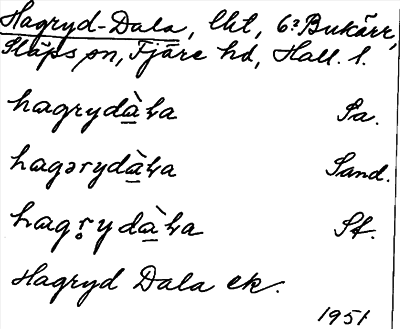 Hagryd-Dala, lht, 6² Bukärr,
Släps sn, Fjäre hd, Hall. l.
hagrydà̱ɬa Sa.
hagərydà̱ɬa Sand.
hagr̥ydà̱ɬa St.
Hagryd Dala ek.
1951